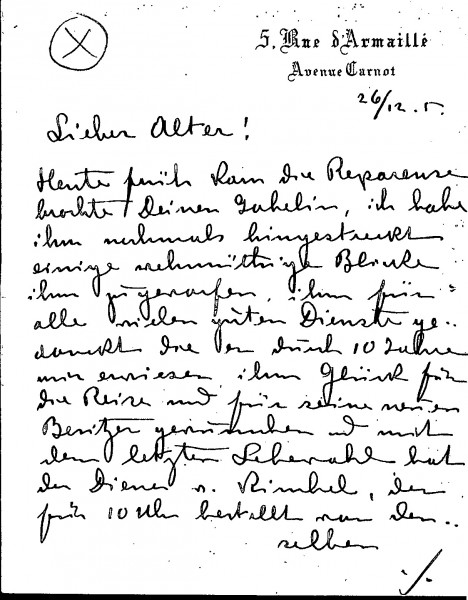 5. Rue d'Armaillé
Avenue Carnot
26/12. 5.
Lieber Alter!
Heute früh kam die Repareuse
brachte Deinen Gobelin, ich habe
ihn nochmals hingestreckt
einige wehmüthige Blicke
ihm zugeworfen, ihm für
alle vielen guten Dienste ge-
dankt die er durch 10 Jahre
mir erwiesen, ihm Glück für
die Reise und für seine neuen
Besitzer gewunschen ud mit
dem letzten Lebewohl hat
der Diener v. Kimbel, der
für 10 Uhr bestellt war den..
selben